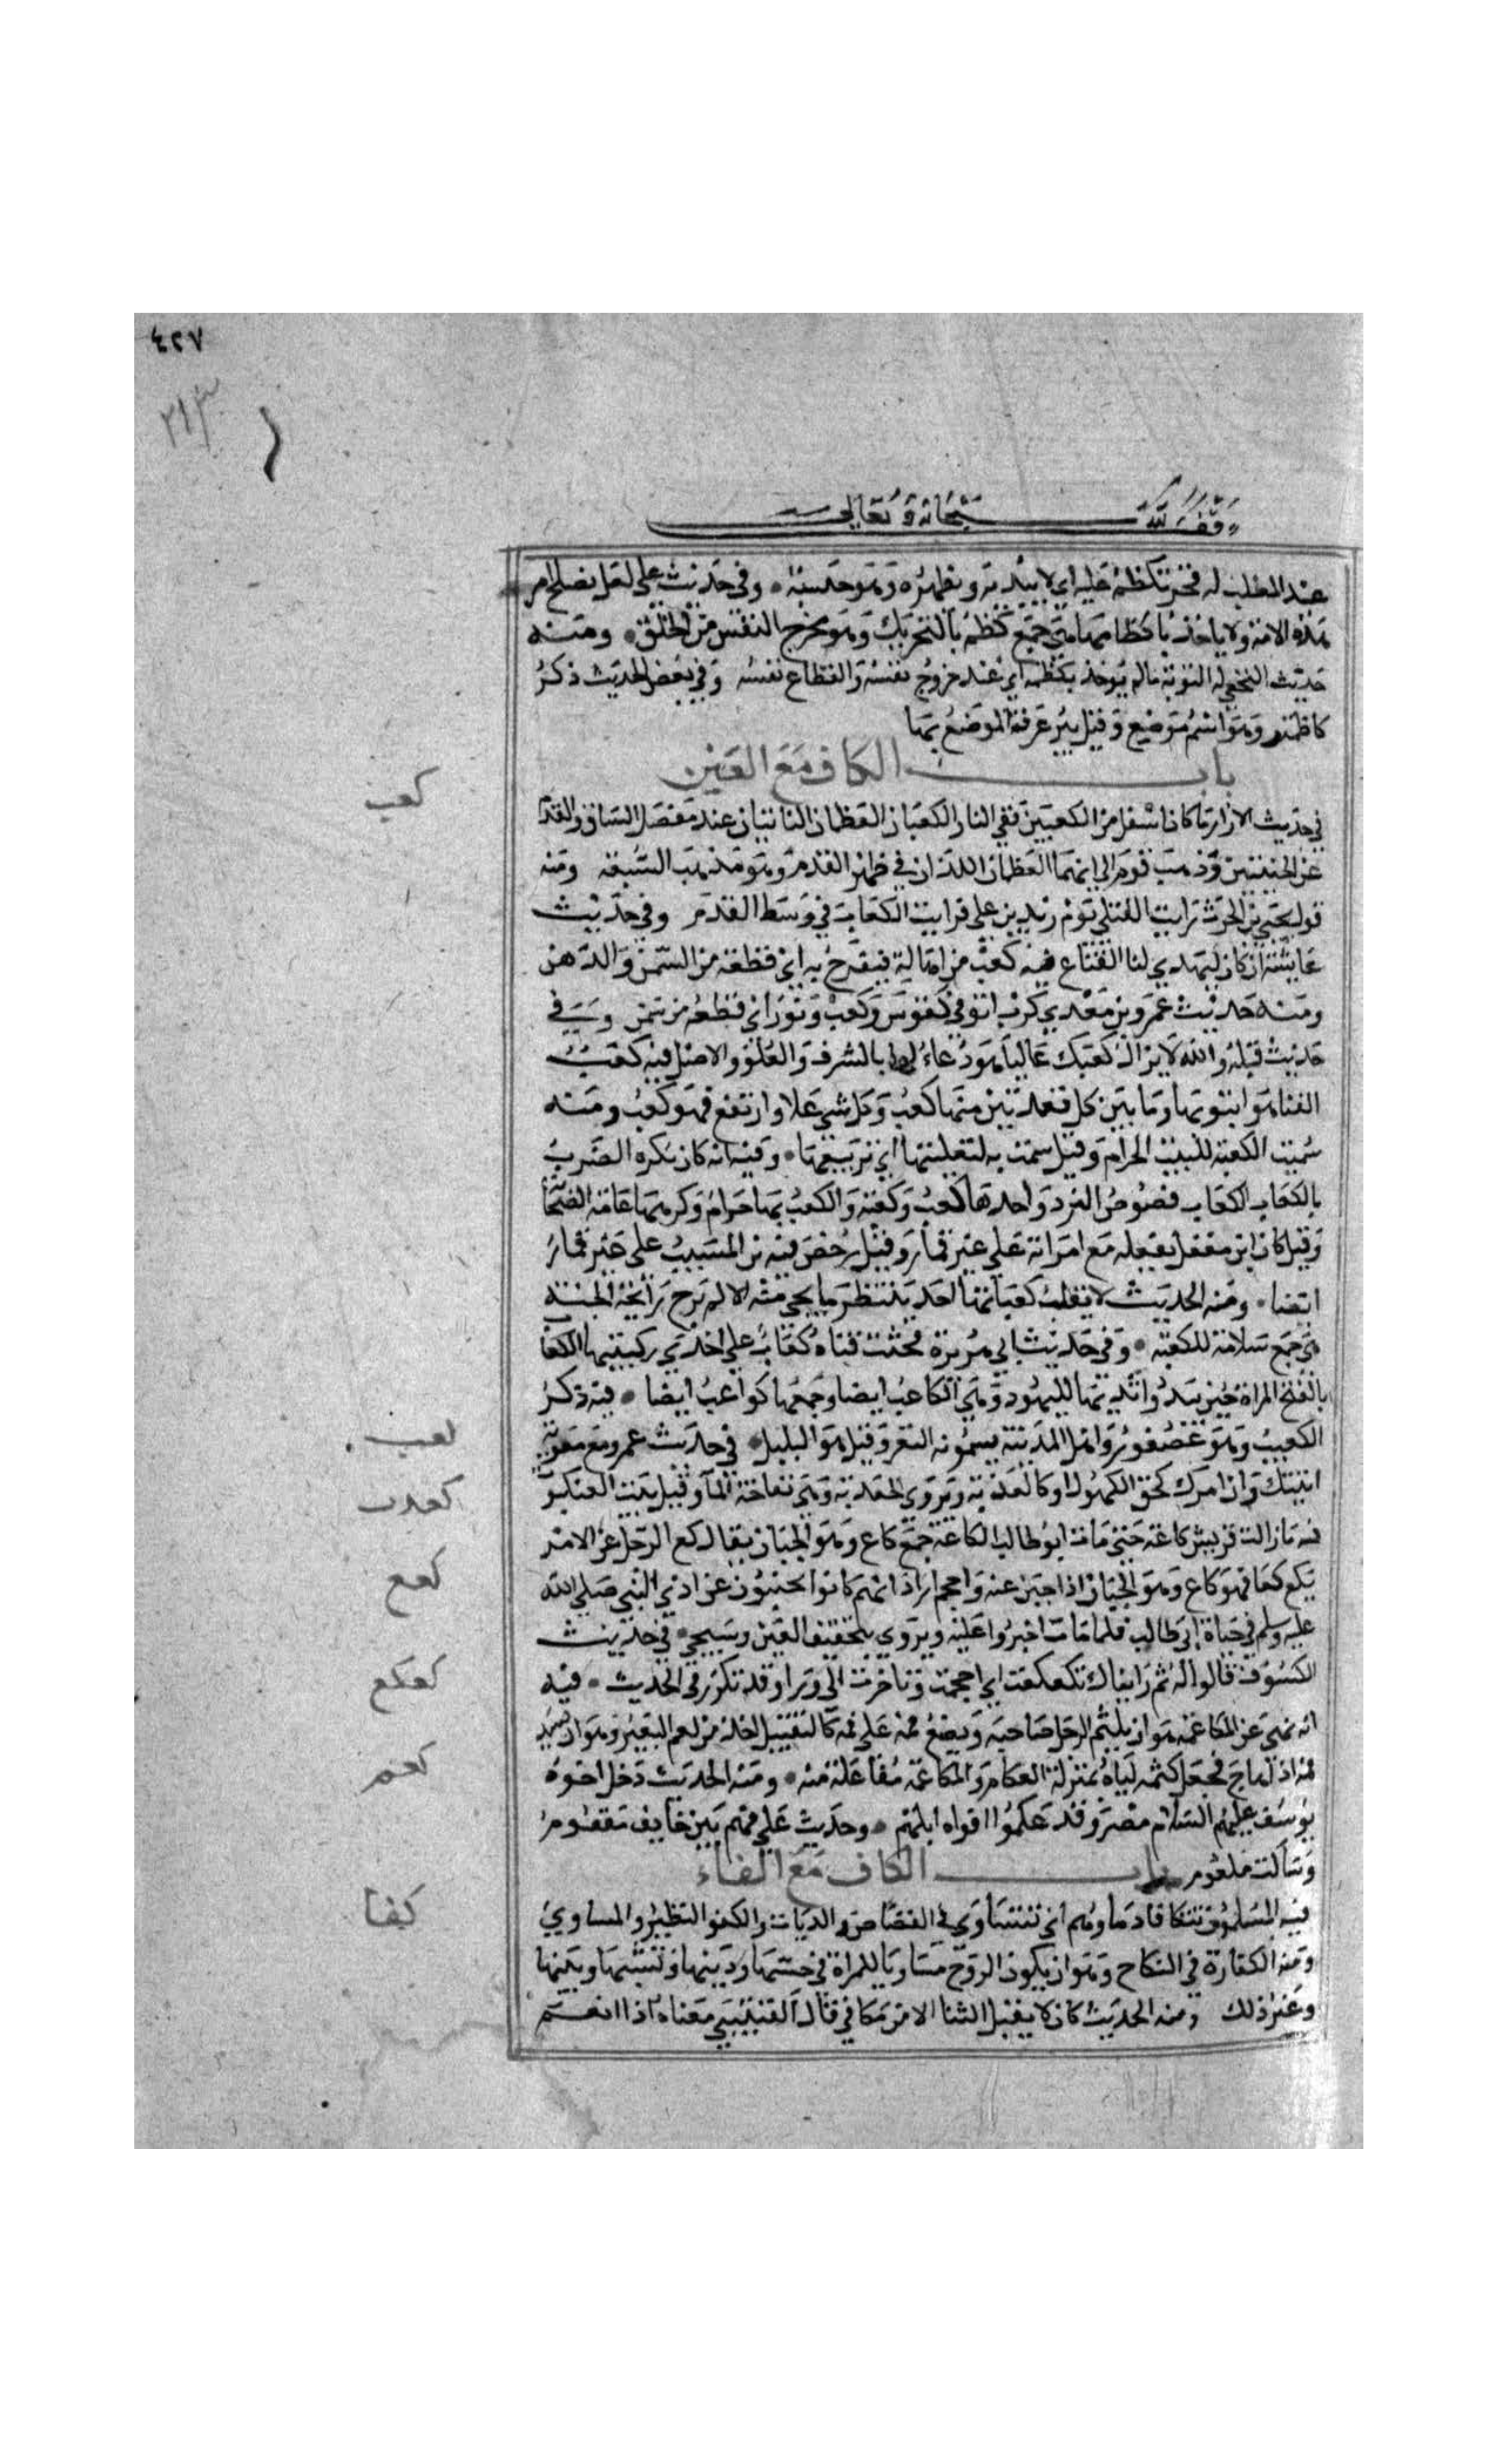 ٤٢٧
٢١٣
وقف لله سبحانه وتعالى
عبد المطلب له فخر تكظم عليه اي لا يبديه ويظهره وهو حسبه ٠ وفي حديث علي لعل يصلح امر
هذه الامة ولا ياخذ باكظامها هي جمع كظم بالتحريك وهو مخرج النفس من الحلق ٠ ومنه
حديث النخعي له التوبة مالم يوخذ بكظمه اي عند خروج نفسه وانقطاع نفسه وفي بعض الحديث ذكر
كاظمة وهو اسم موضع وقيل بير عرفة الموضع بها
باب الكاف مع العين
كعب
في حديث الازار ما كان اسفل من الكعبين ففي النار الكعبان العظمان الناتيان عند مفصل الساق والقدم
عن الجنبين وذهب قوم الى انهما العظمان اللذان في ظهر القدم وهو مذهب الشيعة ومنه
قول يحيى بن الحرث رايت القتلى يوم زيد بن علي فرايت الكعاب في وسط القدم وفي حديث
عايشة ان كان ليهدي لنا القناع فيه كعب من اهالة فيفرح به اي قطعة من السمن والدهن
ومنه حديث عمرو بن معدي كرب اتوني بقوس وكعب وثور اي قطعة من سمن وفي
حديث قيلة والله لا يزال كعبك عاليا هو دعاء لها بالشرف والعلو والاصل فيه كعب
القناة هو انبوبها وما بين كل عقدتين منها كعب وكل شي علا وارتفع فهو كعب ومنه
سميت الكعبة للبيت الحرام وقيل سميت به لتكعيبها اي تربيعها ٠ وفيه انه كان يكره الضرب
بالكعاب الكعاب فصوص النرد واحدها كعب وكعبة والكعب بها حرام وكرهها عامة الصحابة
وقيل كان ابن مغفل يفعله مع امراته على غير قمار وقيل رخص فيه بن المسيب على غير قمار
ايضا ٠ ومنه الحديث لا يقلب كعباتها احد ينتظر ما يجي منه الا لم يرح رايحة الجنة
هي جمع سلامة للكعبة ٠ وفي حديث ابي هريرة فجثت فتاة كعاب على احدى ركبتيها الكعاب
بالفتح المراة حين يبدو ثديها للنهود وهي الكاعب ايضا وجمعها كواعب ايضا ٠ فيه ذكر
لعب
الكعيت وهو عصفور واهل المدينة يسمونه النغر وقيل هو البلبل ٠ في حديث عمرو مع معوية
كعدب
اتيتك وان امرك كحق الكهول او كالكعدبة ويروى الجعدبة وهي نفاخة الما وقيل بيت العنكبو
فيه ما زالت قريش كاعة حتى مات ابو طالب الكاعة جمع كاع وهو الجبان يقال كع الرجل عن الامر
كعع
يكع كعا فهو كاع وهو الجبان اذا جبن عنه واحجم اراد انهم كانوا يجبنون عن اذى النبي صلى الله
عليه وسلم في حياة ابي طالب فلما مات اجترؤا عليه ويروى بتخفيف العين وسيجي ٠ في حديث
كعكع
الكسوف قالوا له ثم رايناك تكعكعت اي احجمت وتاخرت الى ورا وقد تكرر في الحديث ٠ فيه
انه نهى عن المكاعمة هو ان يلثم الرجل صاحبه ويضع فمه على فمه كالتقبيل اخذ من كعم البعير وهو ان يشد
كعم
فمه اذا هاج فجعل لثمه اياه بمنزلة الكعام والمكاعمة مفاعلة منه ٠ ومنه الحديث دخل اخوة
يوسف عليهم السلام مصر وقد عكموا افواه ابلهم ٠ وحديث علي فهم بين خايف مقموم
وساكت مكعوم باب الكاف مع الفاء
كفا
فيه المسلمون تتكافا دماوهم اي تتساوى في القصاص والديات والكفو النظير والمساوي
ومنه الكفارة في النكاح وهو ان يكون الزوج مساويا للمراة في حسبها ودينها ونسبها وبيتها
وغير ذلك ومنه الحديث كان لا يقبل الثنا الا من مكافي قال القتيبي معناه اذا انعم